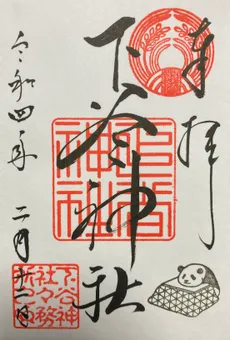 奉拝
下谷神社
下谷神社
令和四年 二月十二日
下谷神
社々務
所之印